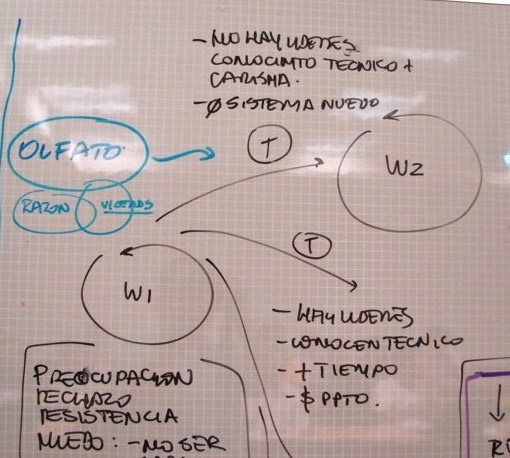 - NO HAY LIDERES.
CONOCIMTO TECNICO +
CARISMA.
- Ø SISTEMA NUEVO
OLFATO.
T
W2
RAZON
T
W1
- HAY LIDERES
- CONOCEN TECNICO
- + TIEMPO
- $ PPTO.
PREOCUPACION
RECHAZO
RESISTENCIA
MIEDO: - NO SER